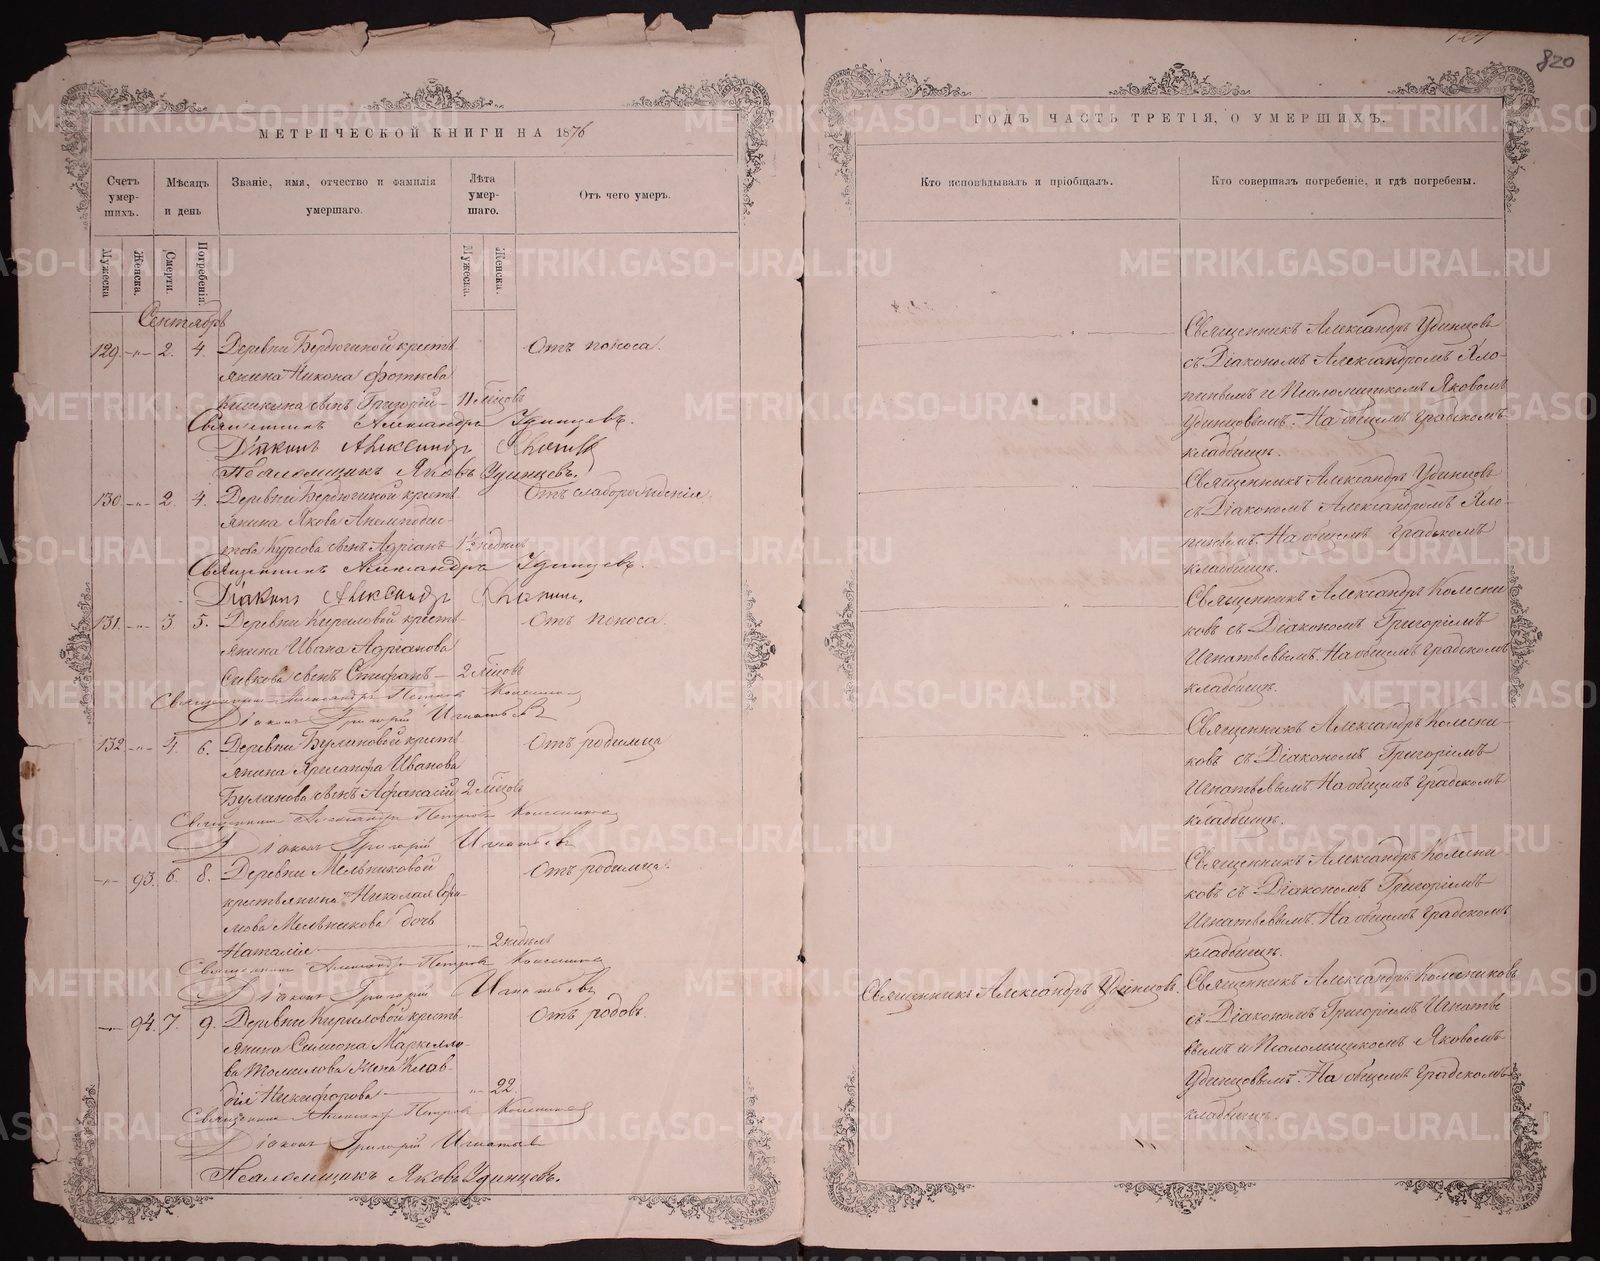 820
МЕТРИЧЕСКОЙ КНИГИ НА 1876
Счетъ умер-шихъ.
Мѣсяцъ и день
Званіе, имя, отчество и фамилія умершаго.
Лѣта умер-шаго.
Отъ чего умеръ.
Мужеска
Женска.
Смерти.
Погребенія.
Мужеска.
Женска.
Сентябрь
129. -"- 2. 4. Деревни Бердюгиной кресть
янина Никона
Кишкина сынъ Григорій - 11 мѣсцовъ
Отъ поноса.
Священникъ Александръ Удинцевъ.
Діаконъ Александръ
Псаломщикъ Яковъ Удинцевъ.
130 -"- 2. 4. Деревни Бердюгиной кресть
янина Якова Анемподис-
това Курсова сынъ Адріанъ 1½ недѣли
Отъ слаборожденія.
Священникъ Александръ Удинцевъ.
Діаконъ Александръ
131. -"- 3. 5. Деревни Кириловой кресть-
янина Ивана Адріанова
Сивкова сынъ Стефанъ - 2 мѣсцовъ
Отъ поноса.
Священникъ Александръ Петровъ
Діаконъ Григорій Игнатьевъ
132 -"- 4. 6. Деревни Булановой кресть
янина Ивanova
Буланова сынъ Афанасій 2 мѣсцовъ
Отъ родимца
Священникъ Александръ Петровъ
Діаконъ Григорій Игнатьевъ
-"- 93. 6. 8. Деревни Мельниковой
крестьянина Николая Ефи-
мова Мельникова дочь
Наталія - 2 недѣль
Отъ родимца.
Священникъ Александръ Петровъ
Діаконъ Григорій Игнатьевъ
-"- 94. 7. 9. Деревни Кириловой кресть-
янина Симеона Маркелло-
ва Томилова жена Клав-
дія Никифорова - 22.
Отъ родовъ.
Священникъ Александръ Петровъ
Діаконъ Григорій Игнатьев
Псаломщикъ Яковъ Удинцевъ.
ГОДЪ ЧАСТЬ ТРЕТІЯ, О УМЕРШИХЪ.
Кто исповѣдывалъ и пріобщалъ.
Кто совершалъ погребеніе, и гдѣ погребены.
Священникъ Александръ Удинцовъ
съ Діакономъ Александромъ Хло-
пинымъ и Псаломщикомъ Яковомъ
Удинцовымъ. На общемъ градскомъ
кладбищѣ.
Священникъ Александръ Удинцовъ
съ Діакономъ Александромъ Хло-
пинымъ. На общемъ градскомъ
кладбищѣ.
Священникъ Александръ Колесни
ковъ съ Діакономъ Григоріемъ
Игнатьевымъ. На общемъ градскомъ
кладбищѣ.
Священникъ Александръ Колесни-
ковъ съ Діакономъ Григоріемъ
Игнатьевымъ. На общемъ градскомъ
кладбищѣ.
Священникъ Александръ Колесни-
ковъ съ Діакономъ Григоріемъ
Игнатьевымъ. На общемъ градскомъ
кладбищѣ.
Священникъ Александръ Удинцовъ.
Священникъ Александръ Колесниковъ
съ Діакономъ Григоріемъ Игнатье
вымъ и Псаломщикомъ Яковомъ
Удинцовымъ. На общемъ градскомъ
кладбищѣ.
METRIKI.GASO-URAL.RU